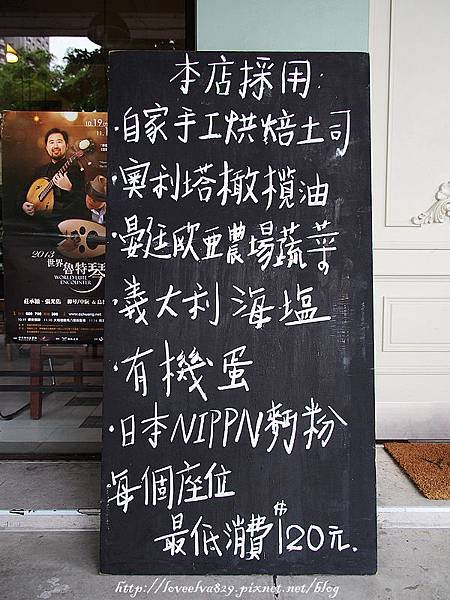 本店採用:
·自家手工烘焙土司
·奧利塔橄欖油
·晏廷歐亞農場蔬菜
·義大利海塩
·有機蛋
·日本NIPPN麵粉
·每個座位
最低消費$120元.
10.19
2013
世界
魯特琴
WORLD LUTE
ENCOUNTER
http://loveelva829.pixnet.net/blog